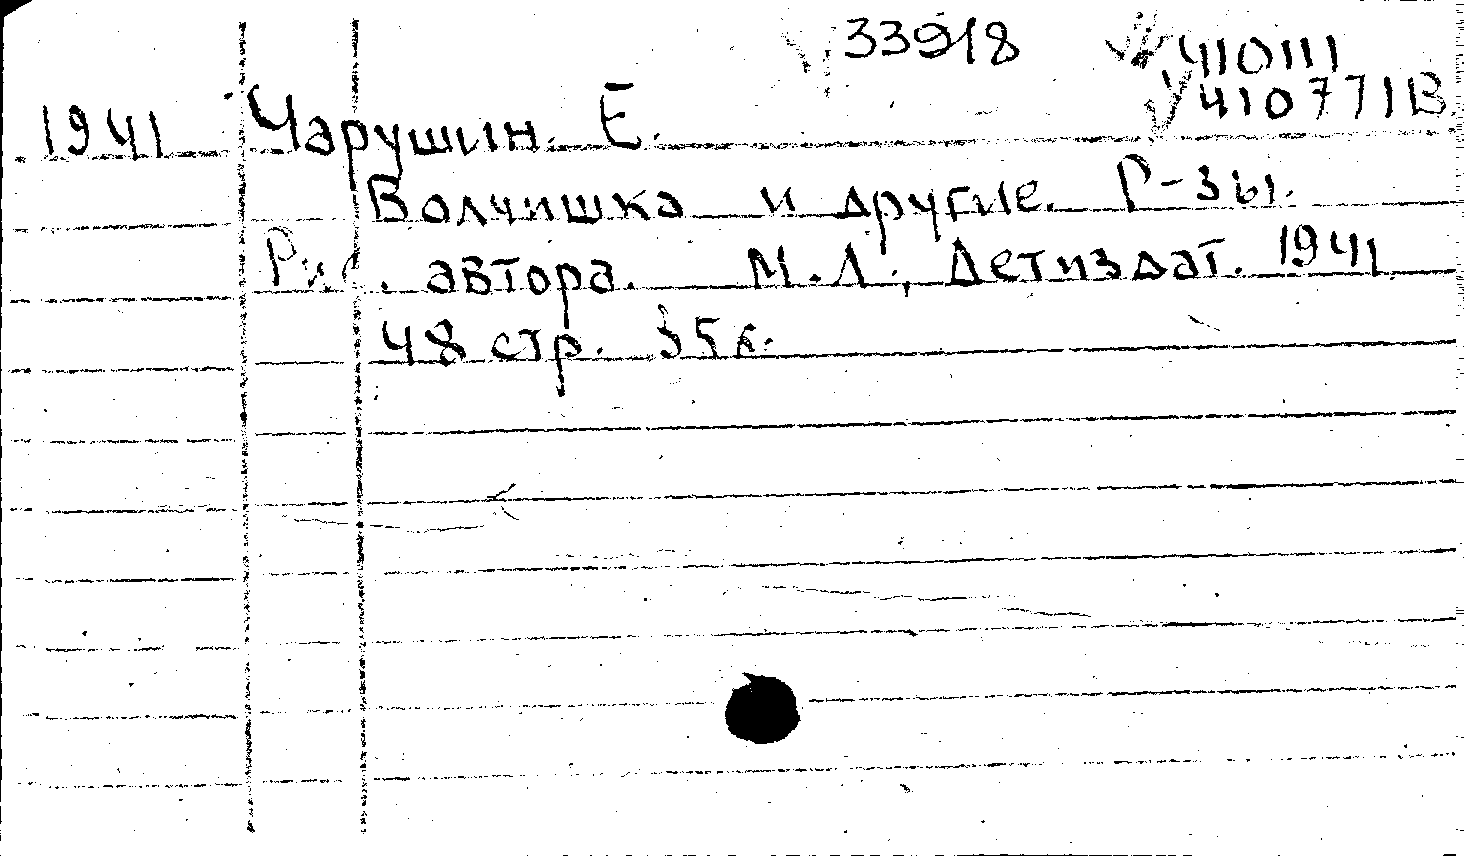 33918 410111
410771В
1941 Чарушин. Е.
Волчишка и другие. Р-зы.
Рис. автора. М.Л., Детиздат. 1941
48 стр. 35к.